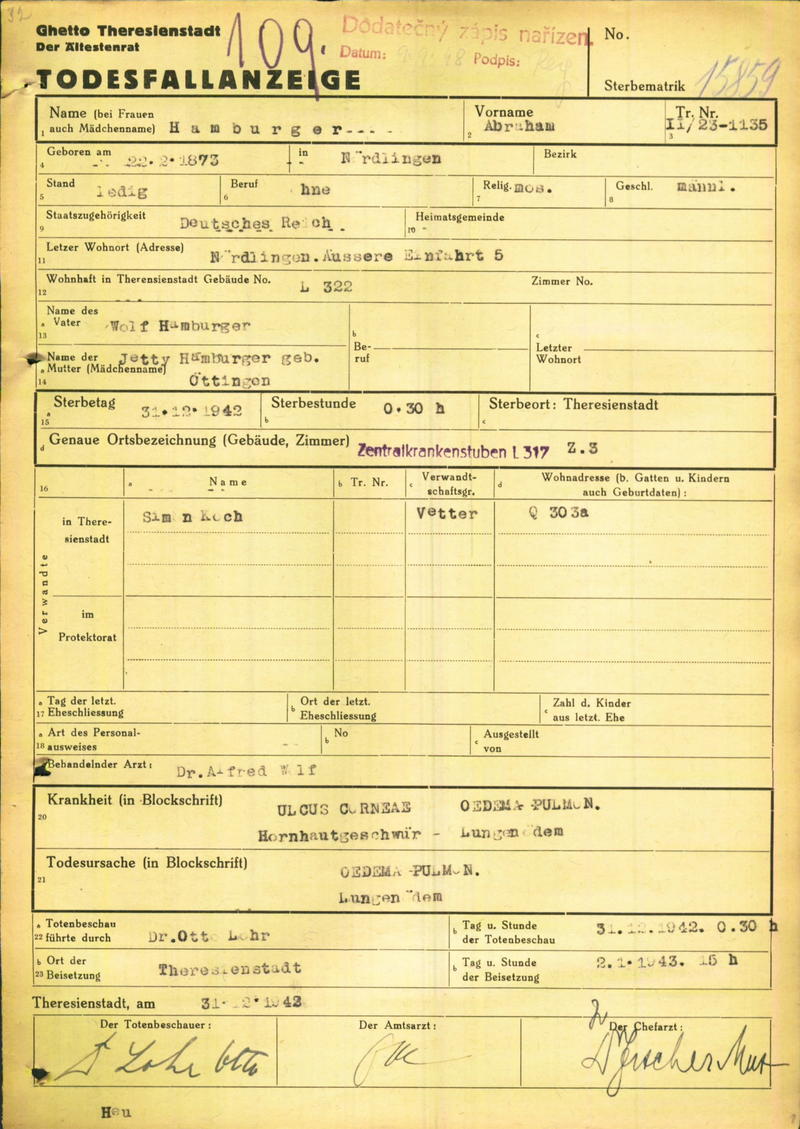 32
Ghetto Theresienstadt
Der Ältestenrat
109.
Dodatečný zápis nařízen
Datum: Podpis:
No.
TODESFALLANZEIGE
Sterbematrik 15859
Name (bei Frauen auch Mädchenname) Hamburger----
1
Vorname Abraham
2
Tr. Nr. II/23-1135
3
Geboren am 22.2.1873 in Nördlingen Bezirk
4
Stand ledig Beruf hne Relig. mos. Geschl. männl.
5 6 7 8
Staatszugehörigkeit Deutsches Reich. Heimatsgemeinde -
9 10
Letzer Wohnort (Adresse) Nördlingen.Äussere Einfahrt 5
11
Wohnhaft in Theresienstadt Gebäude No. L 322 Zimmer No.
12
Name des
a Vater Wolf Hamburger b c
13
Be-
ruf
Letzter
Wohnort
Name der Jetty Hamburger geb.
a Mutter (Mädchenname)
14 Öttingen
a Sterbetag 31.12.1942 b Sterbestunde 0.30 h c Sterbeort: Theresienstadt
15
d Genaue Ortsbezeichnung (Gebäude, Zimmer) Zentralkrankenstuben L317 Z.3
16 a Name b Tr. Nr. c Verwandt-
schaftsgr. d Wohnadresse (b. Gatten u. Kindern
auch Geburtdaten) :
Verwandte
in There-
sienstadt
Sim n Koch Vetter Q 303a
im
Protektorat
a Tag der letzt.
17 Eheschliessung
b Ort der letzt.
Eheschliessung
c Zahl d. Kinder
aus letzt. Ehe
a Art des Personal-
18 ausweises --
b No
c Ausgestellt
von
Behandelnder Arzt: Dr.Alfred W lf
Krankheit (in Blockschrift) ULCUS CORNEAE OEDEMA -PULMON.
20
Hornhautgeschwür - Lungen dem
Todesursache (in Blockschrift) OEDEMA -PULMON.
21
Lungen ̈dem
a Totenbeschau
22 führte durch Dr.Ott Lohr
b Tag u. Stunde
der Totenbeschau 31.12.1942. 0.30 h
b Ort der
23 Beisetzung Theresienstadt
b Tag u. Stunde
der Beisetzung 2.1.1943. 15 h
Theresienstadt, am 31.12.1942
Der Totenbeschauer: Der Amtsarzt: Der Chefarzt:
Hau